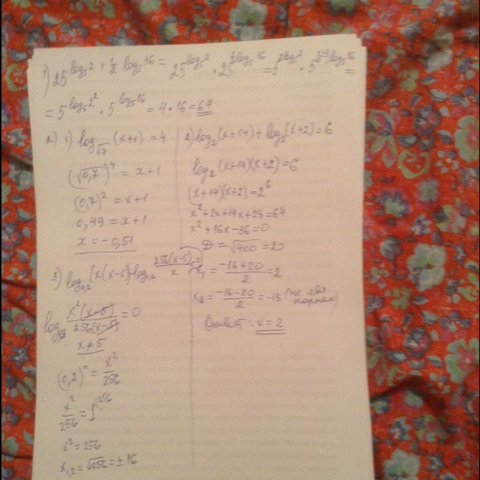 1) 25^(log₅2 + ½ log₅16) = 25^(log₅2) · 25^(½log₅16) = 5^(2log₅2) · 5^(2·½·log₅16) =
= 5^(log₅2²) · 5^(log₅16) = 4 · 16 = 64
2) 1) log_√0,7 (x+1) = 4
(√0,7)⁴ = x+1
(0,7)² = x+1
0,49 = x+1
x = -0,51
2) log₂(x+14) + log₂(x+2) = 6
log₂(x+14)(x+2) = 6
(x+14)(x+2) = 2⁶
x² + 2x + 14x + 28 = 64
x² + 16x - 36 = 0
D = √400 = 20
x₁ = (-16+20)/2 = 2
x₂ = (-16-20)/2 = -18 (не явл. корнем)
Ответ: x = 2
3) log₀,₂(x(x-5)) log₀,₂ 256(x-5)/x = 0
log₀,₂ x²(x-5)/256(x-5) = 0
x ≠ 5
(0,2)⁰ = x²/256
x²/256 = 1
x² = 256
x₁,₂ = √256 = ±16